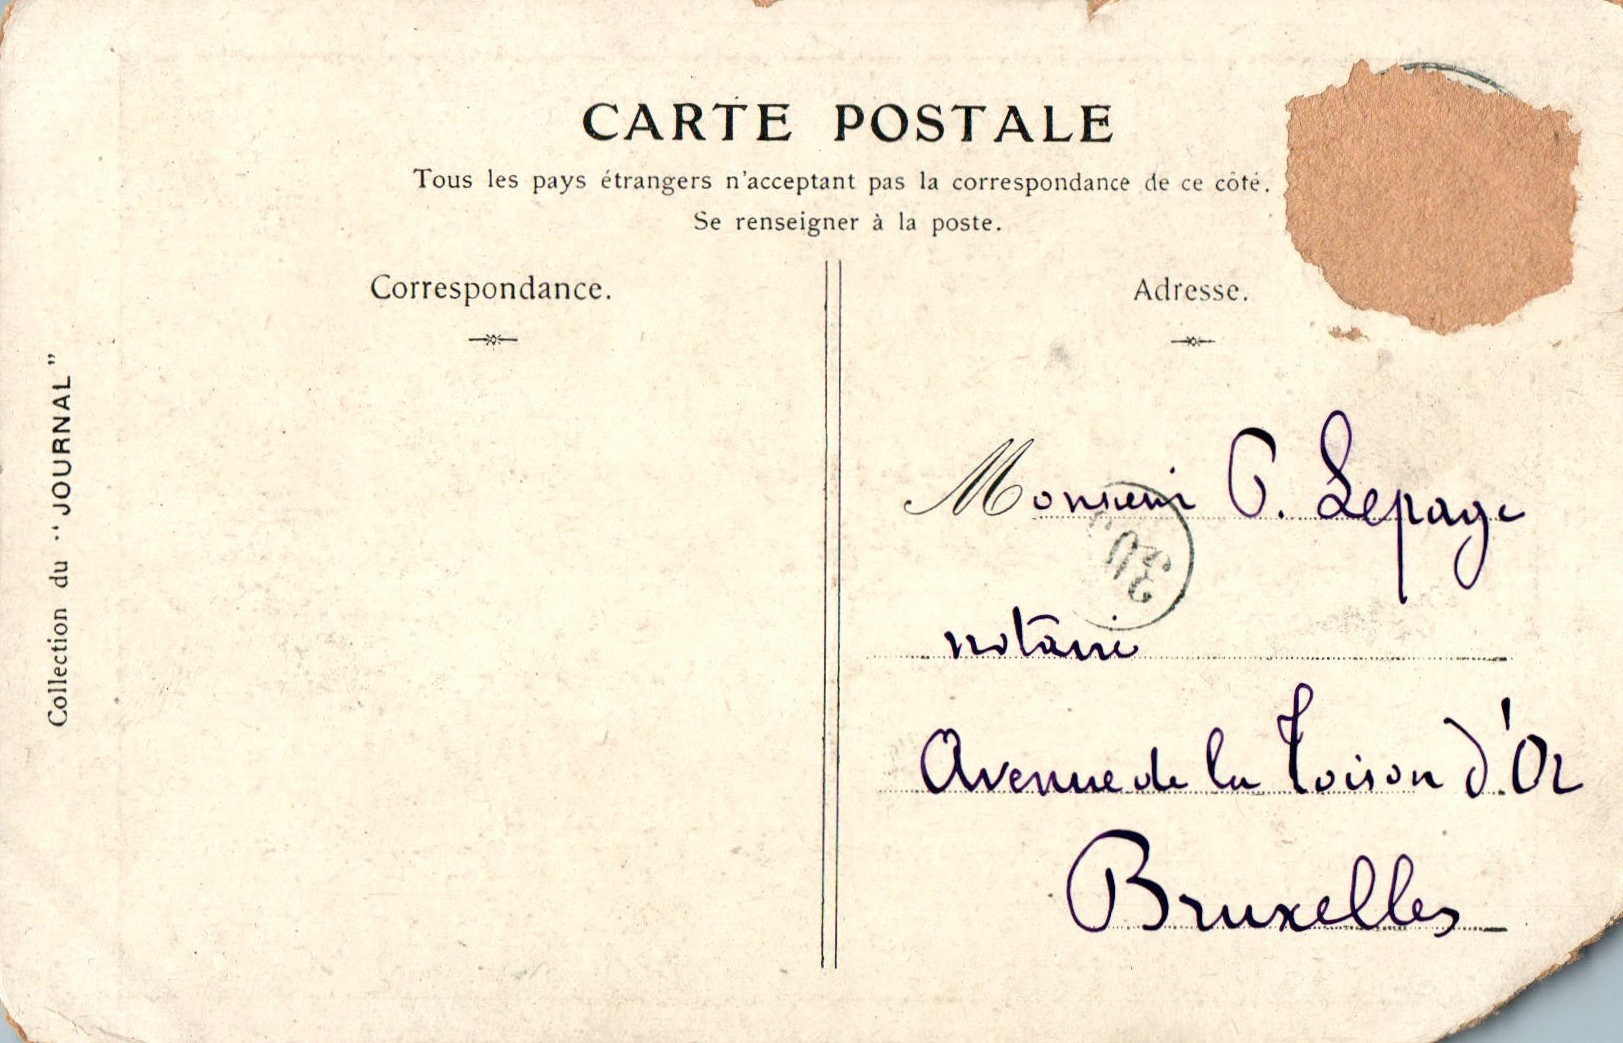 CARTE POSTALE
Tous les pays étrangers n'acceptant pas la correspondance de ce côté.
Se renseigner à la poste.
Correspondance.
Adresse.
Collection du “JOURNAL”
Monsieur P. Lepage
30
notaire
Avenue de la Toison d'Or
Bruxelles